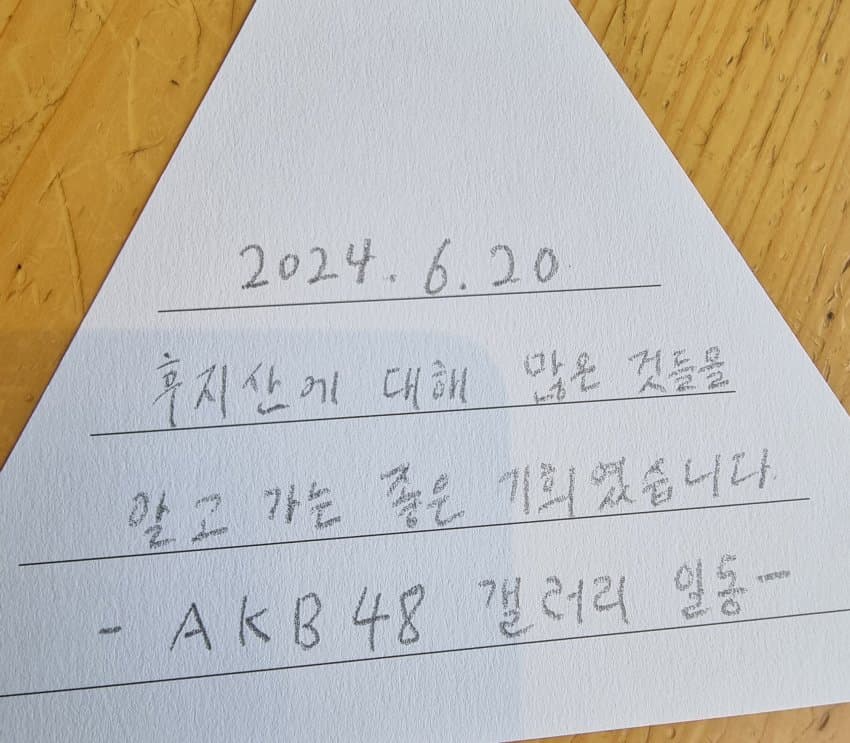 2024. 6. 20
후지산에 대해 많은 것들을
알고 가는 좋은 기회였습니다.
- AKB48 갤러리 일동-